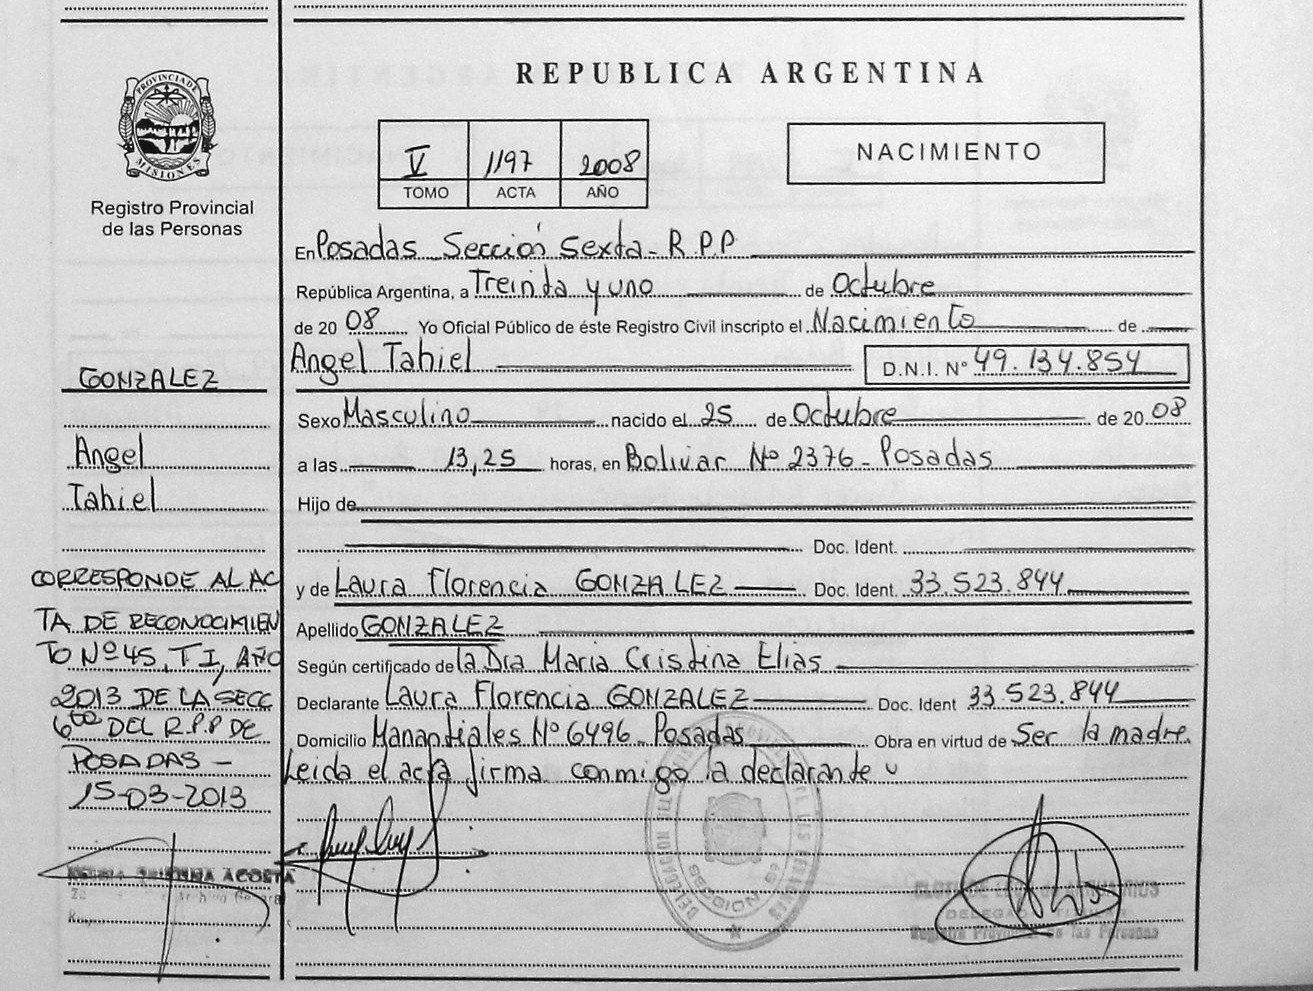 REPUBLICA ARGENTINA
PROVINCIA DE MISIONES
Registro Provincial
de las Personas
V 1197 2008
TOMO ACTA AÑO
NACIMIENTO
En Posadas Secció́n Sexta - R.P.P
República Argentina, a Treinta y uno de Octubre
de 20 08 Yo Oficial Público de éste Registro Civil inscripto el Nacimiento de
Angel Tahiel D.N.I. N° 49.134.854
Sexo Masculino nacido el 25 de Octubre de 20 08
a las 13,25 horas, en Bolivar Nº 2376 - Posadas
Hijo de
Doc. Ident.
y de Laura Florencia GONZALEZ Doc. Ident. 33.523.844
Apellido GONZALEZ
Según certificado de la Dra Maria Cristina Elias
Declarante Laura Florencia GONZALEZ Doc. Ident 33.523.844
Domicilio Manantiales Nº 6496 Posadas Obra en virtud de Ser la madre.
Leida el acta firma conmigo la declarante
GONZALEZ
Angel
Tahiel
CORRESPONDE AL AC
TA DE RECONOCIMIEN
TO Nº 45, T I, AÑO
2013 DE LA SECC
6ta DEL R.P.P DE
POSADAS -
15-03-2013
ACOSTA
DELEGADA TITULAR
Registro Provincial de las Personas